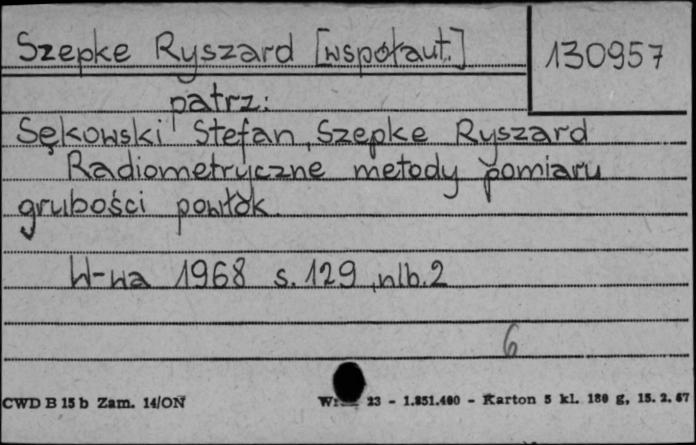 Szepke Ryszard [współaut.] 130957
patrz:
Sękowski Stefan, Szepke Ryszard
Radiometryczne metody pomiaru
grubości powłok.
W-wa 1968 s. 129, nlb. 2
6
CWD B 15 b Zam. 14/ON 23 - 1.851.400 - Karton 5 kl. 180 g, 15. 2. 67